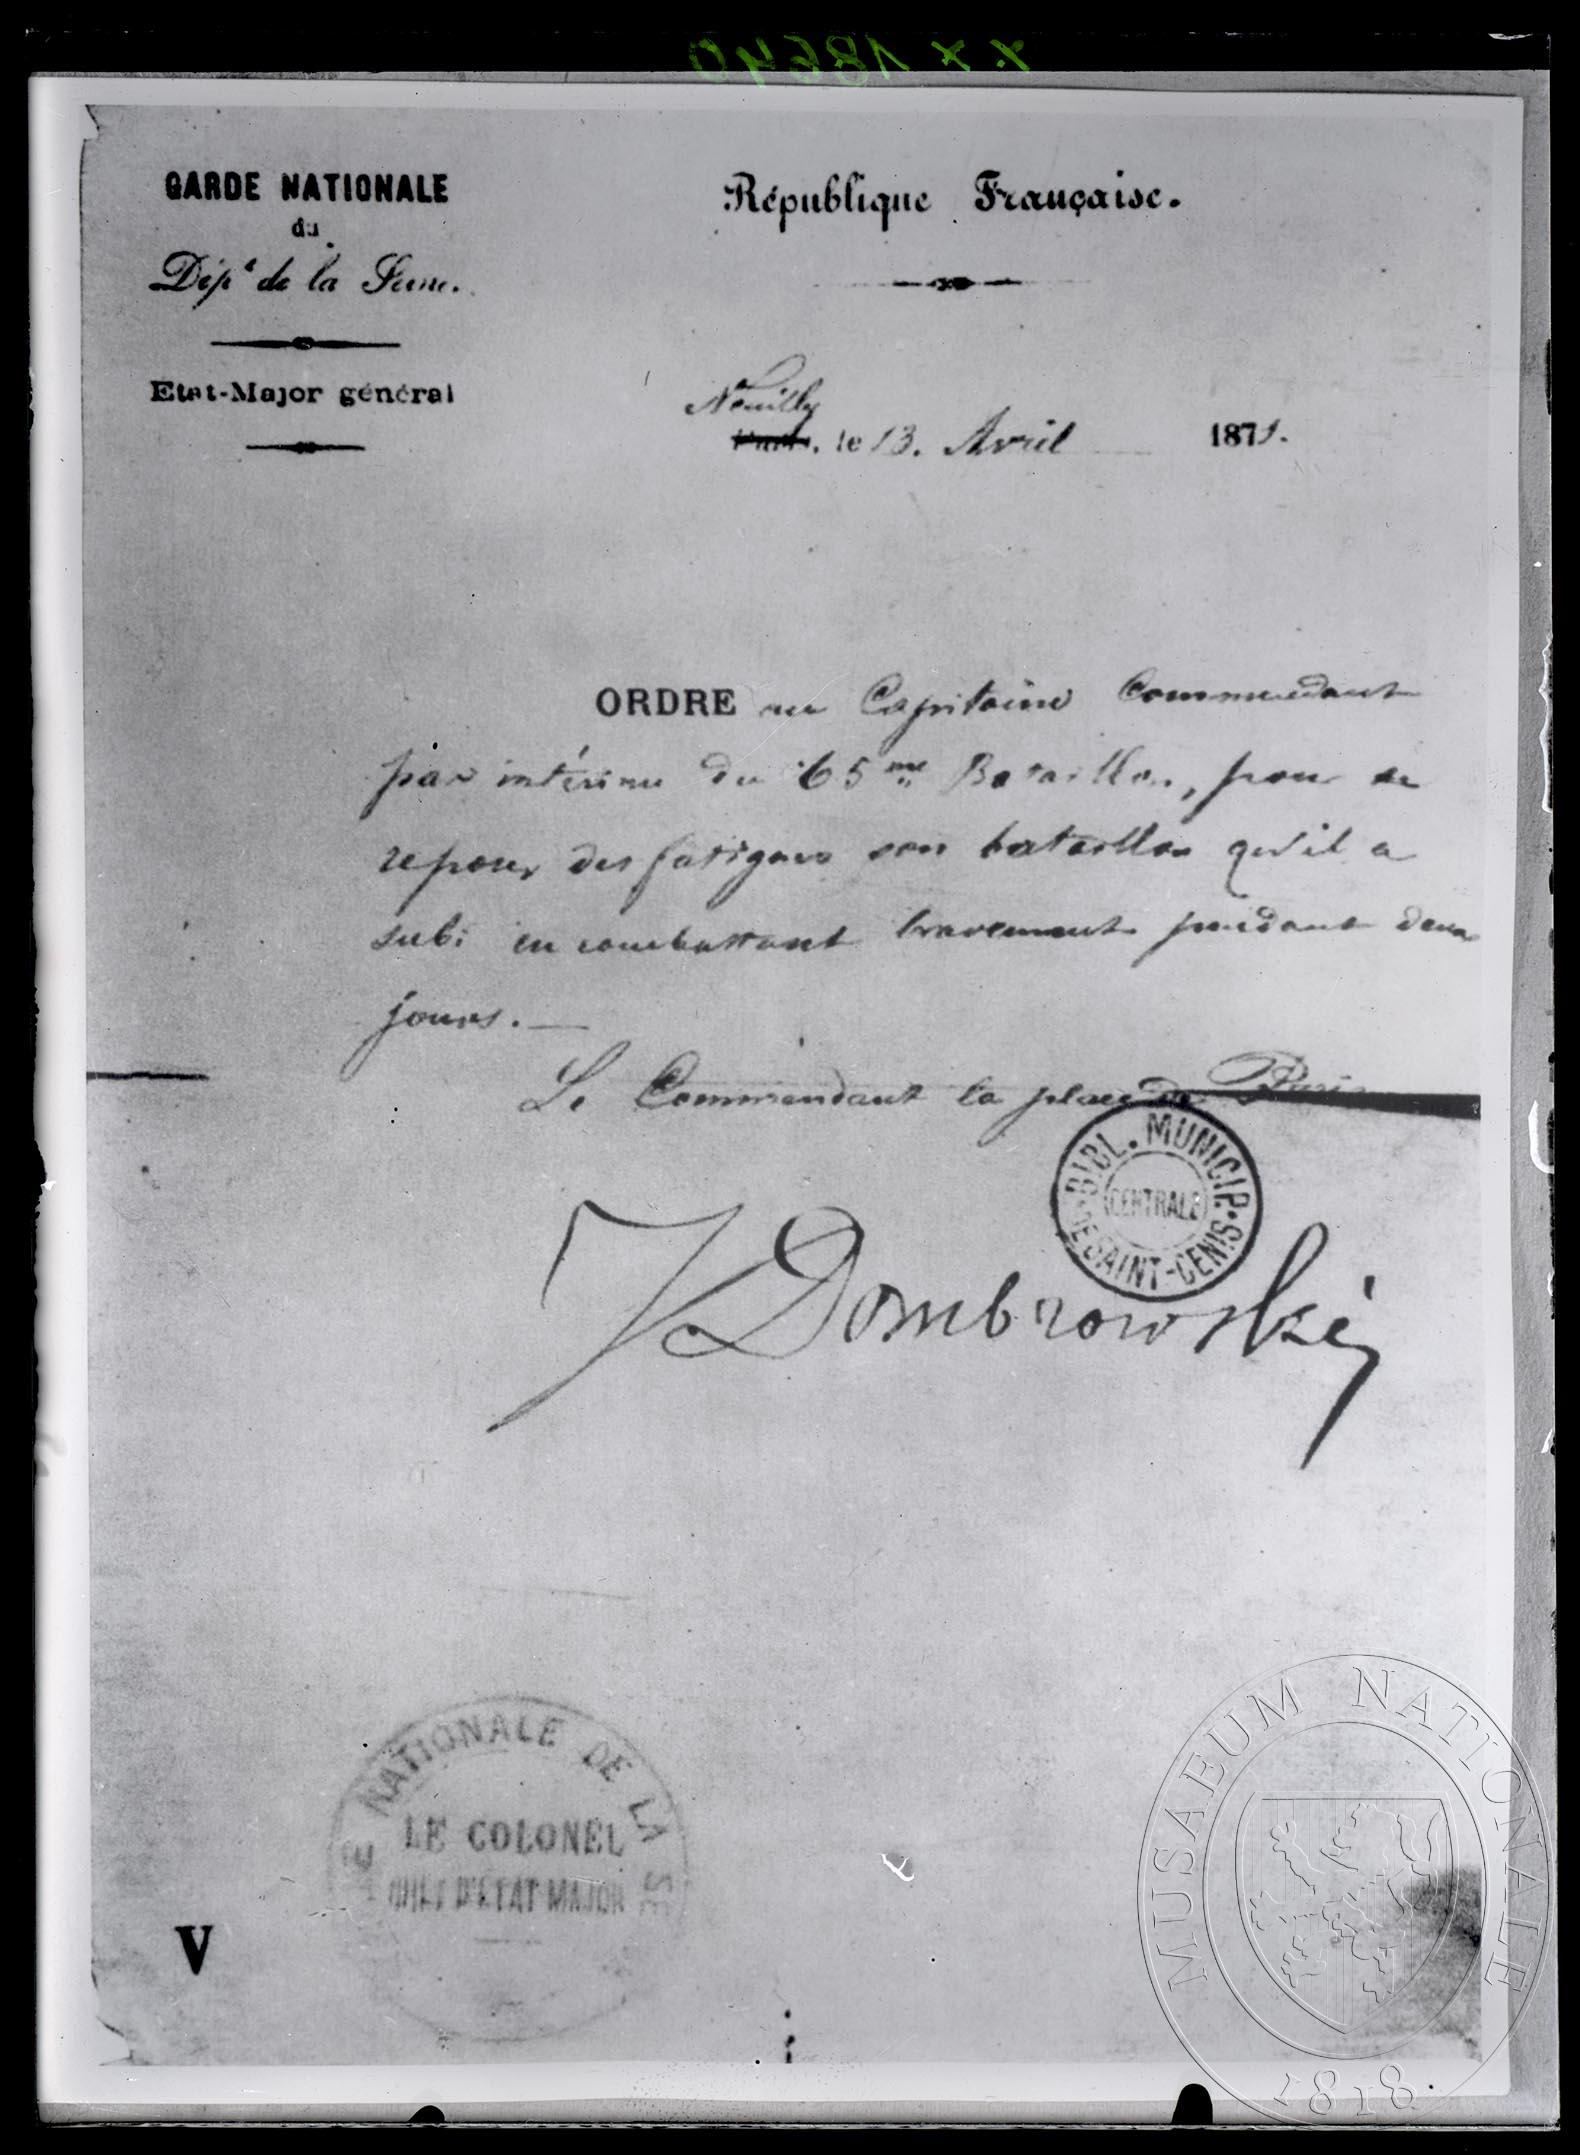 XX 18640
GARDE NATIONALE
du
Dépt de la Seine.
Etat-Major général
République Française.
Neuilly
Paris, le 13. Avril 1871.
ORDRE au Capitaine Commendant
par intérime du 65me Bataillon, pour se
reposer des fatigues son bataillon qu'il a
subi en combattant bravement pendant deux
jours. —
Le Commendant la place de Paris
J Dombrowski
BIBL. MUNICIP.
CENTRALE
DE SAINT-DENIS
NATIONALE DE LA SE
LE COLONEL
CHEF D'ETAT MAJOR
V
MUSAEUM NATIONALE
1818